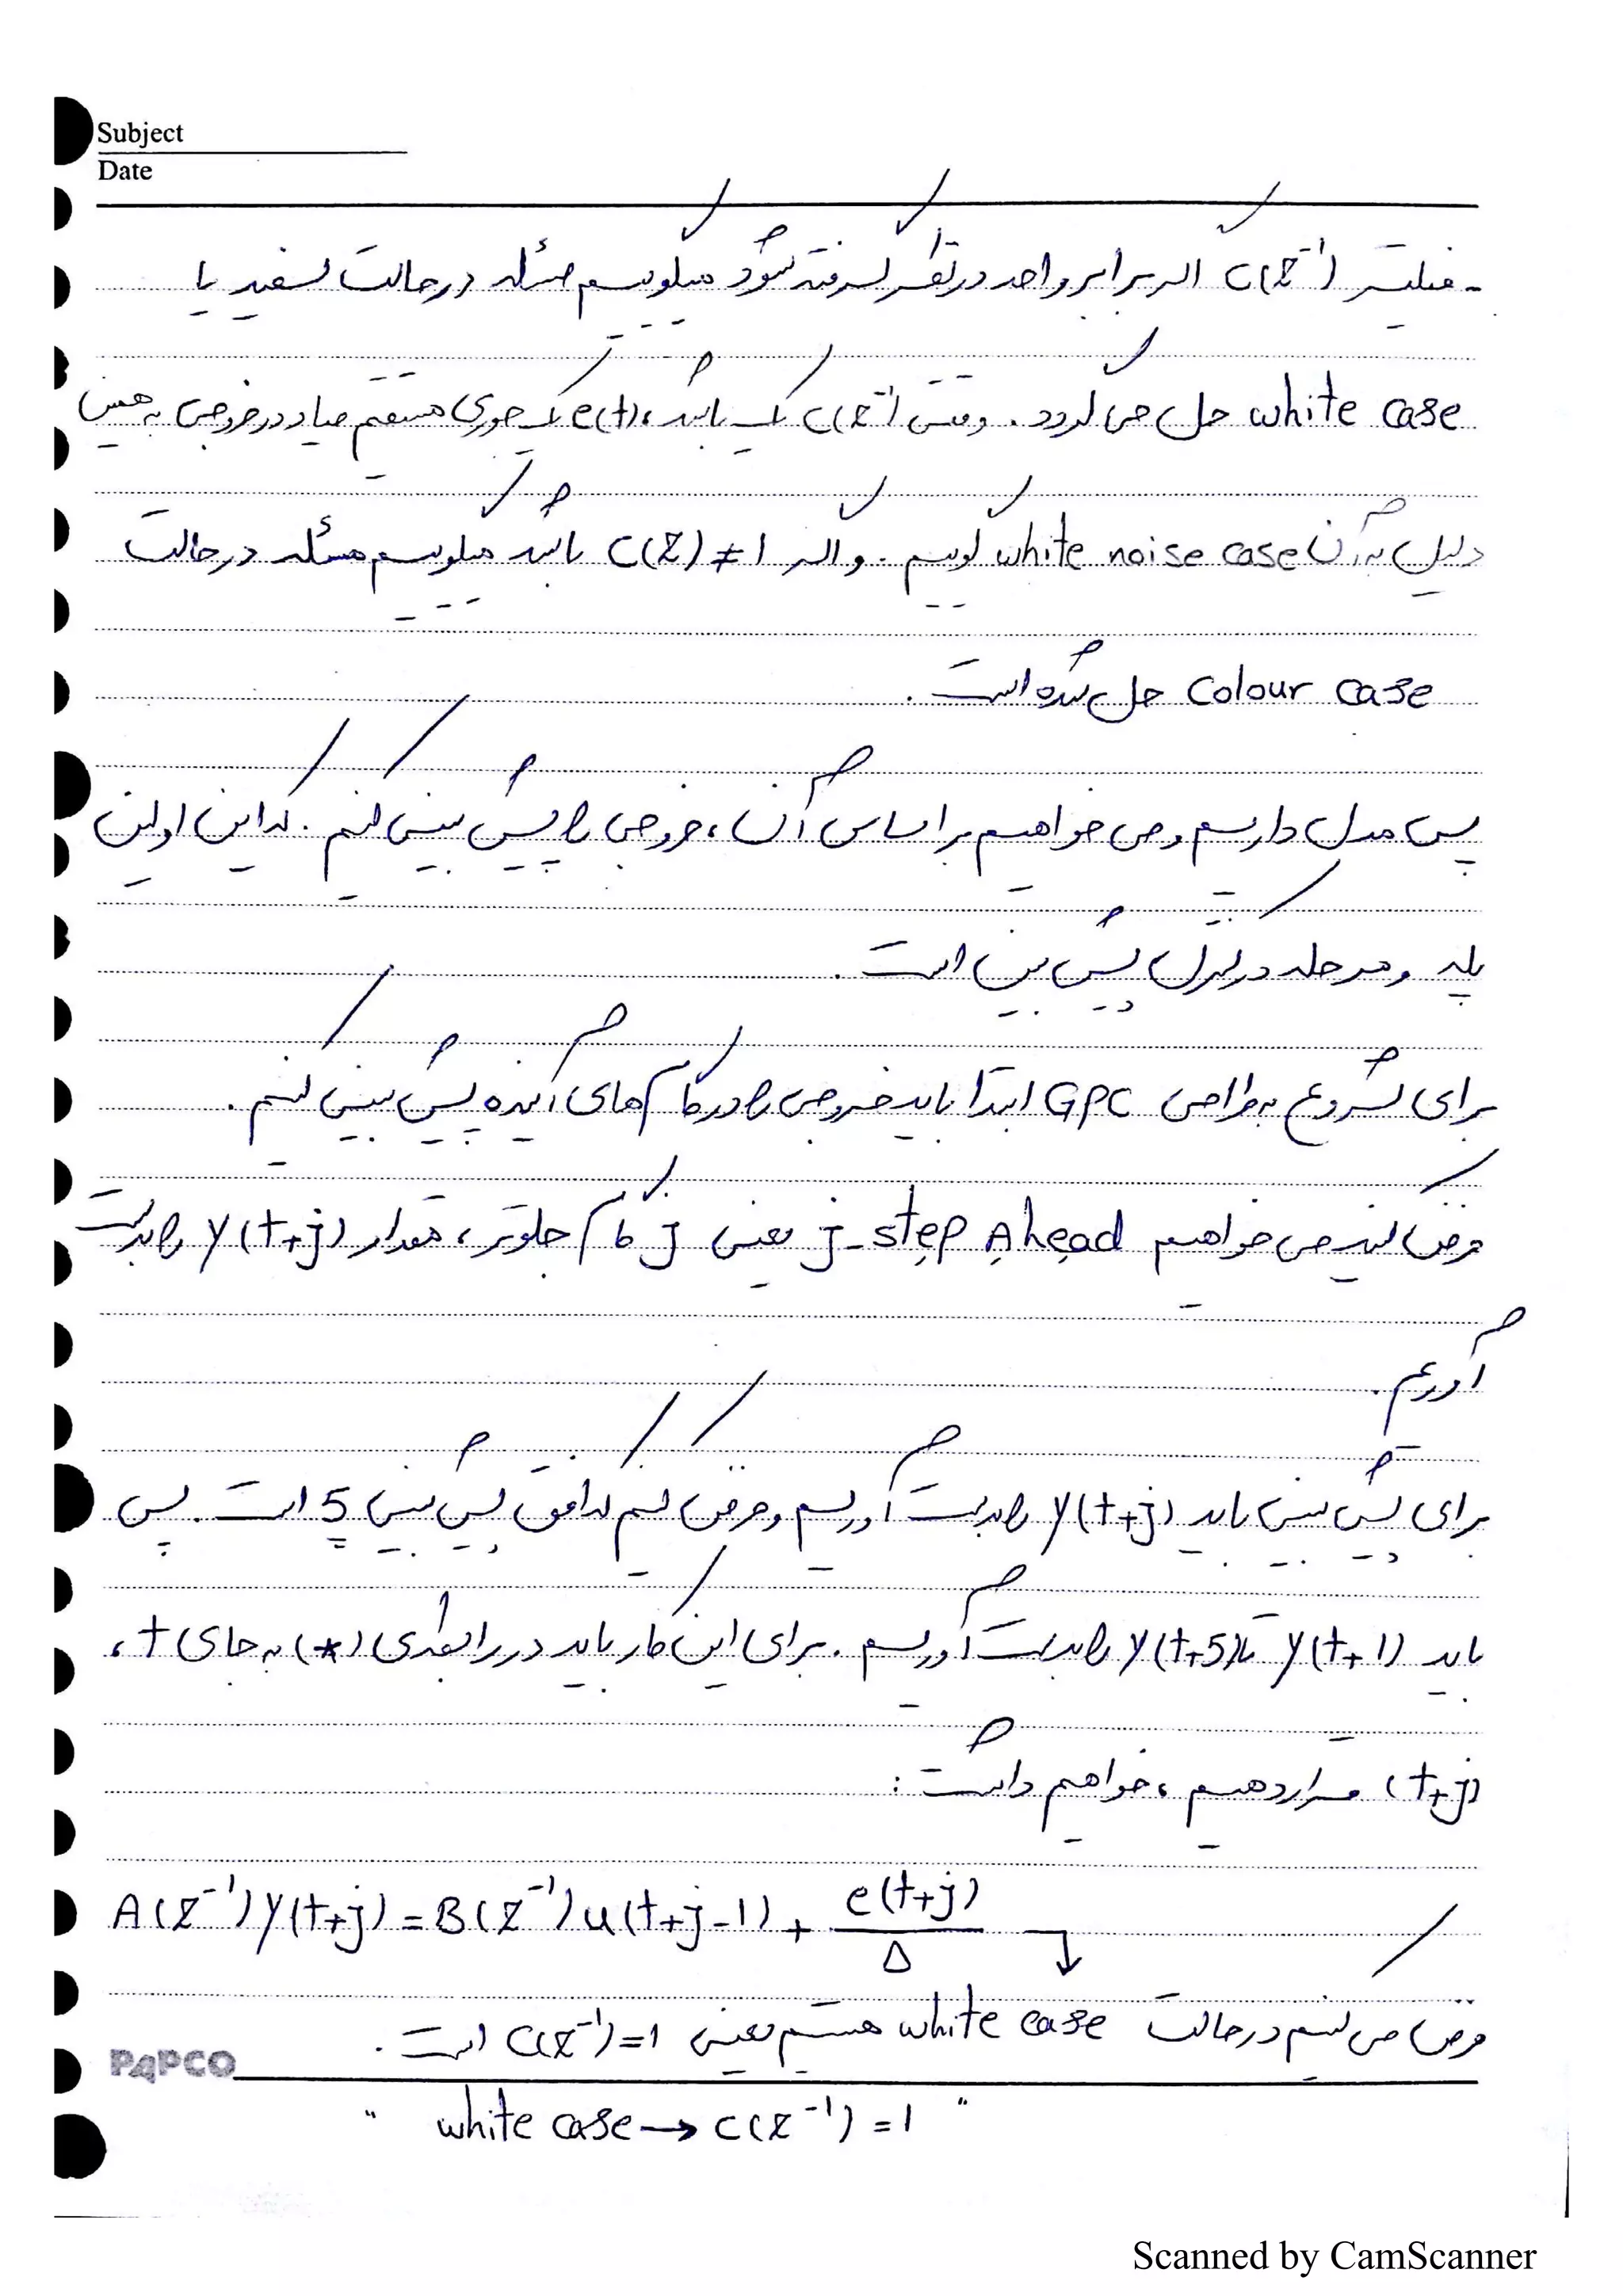 Subject
Date
- فیلتر C(z⁻¹) اگر برابر واحد در نظر گرفته شود میگوییم مسئله در حالت سفید یا
white case حل می گردد. وقتی C(z⁻¹) یک باشد، e(t) یک جوری مستقیم میاد در خروجی به همین
دلیل به آن white noise case گوییم. و اگر C(z) ≠ 1 باشد میگوییم مسئله در حالت
colour case حل شده است.
پس مدل داریم و می خواهیم بر اساس آن، خروجی را پیش بینی کنیم. که این اولین
پله و مرحله در کنترل پیش بین است.
برای شروع به طراحی GPC ابتدا باید خروجی را در گام های آینده پیش بینی کنیم.
فرض کنید می خواهیم j-step Ahead یعنی j گام جلوتر، مقدار y(t+j) را بدست
آوریم.
برای پیش بینی باید y(t+j) را بدست آوریم و فرض کنیم که افق پیش بینی 5 است. پس
باید y(t+1) تا y(t+5) را بدست آوریم. برای این کار باید در رابطه‌ی (*) به جای t،
(t+j) قرار دهیم، خواهیم داشت:
A(z⁻¹)y(t+j) = B(z⁻¹)u(t+j-1) + e(t+j)/Δ ↓
فرض می کنیم در حالت white case هستیم یعنی C(z⁻¹)=1 است.
PAPCO
" white case → C(z⁻¹) = 1 "
Scanned by CamScanner